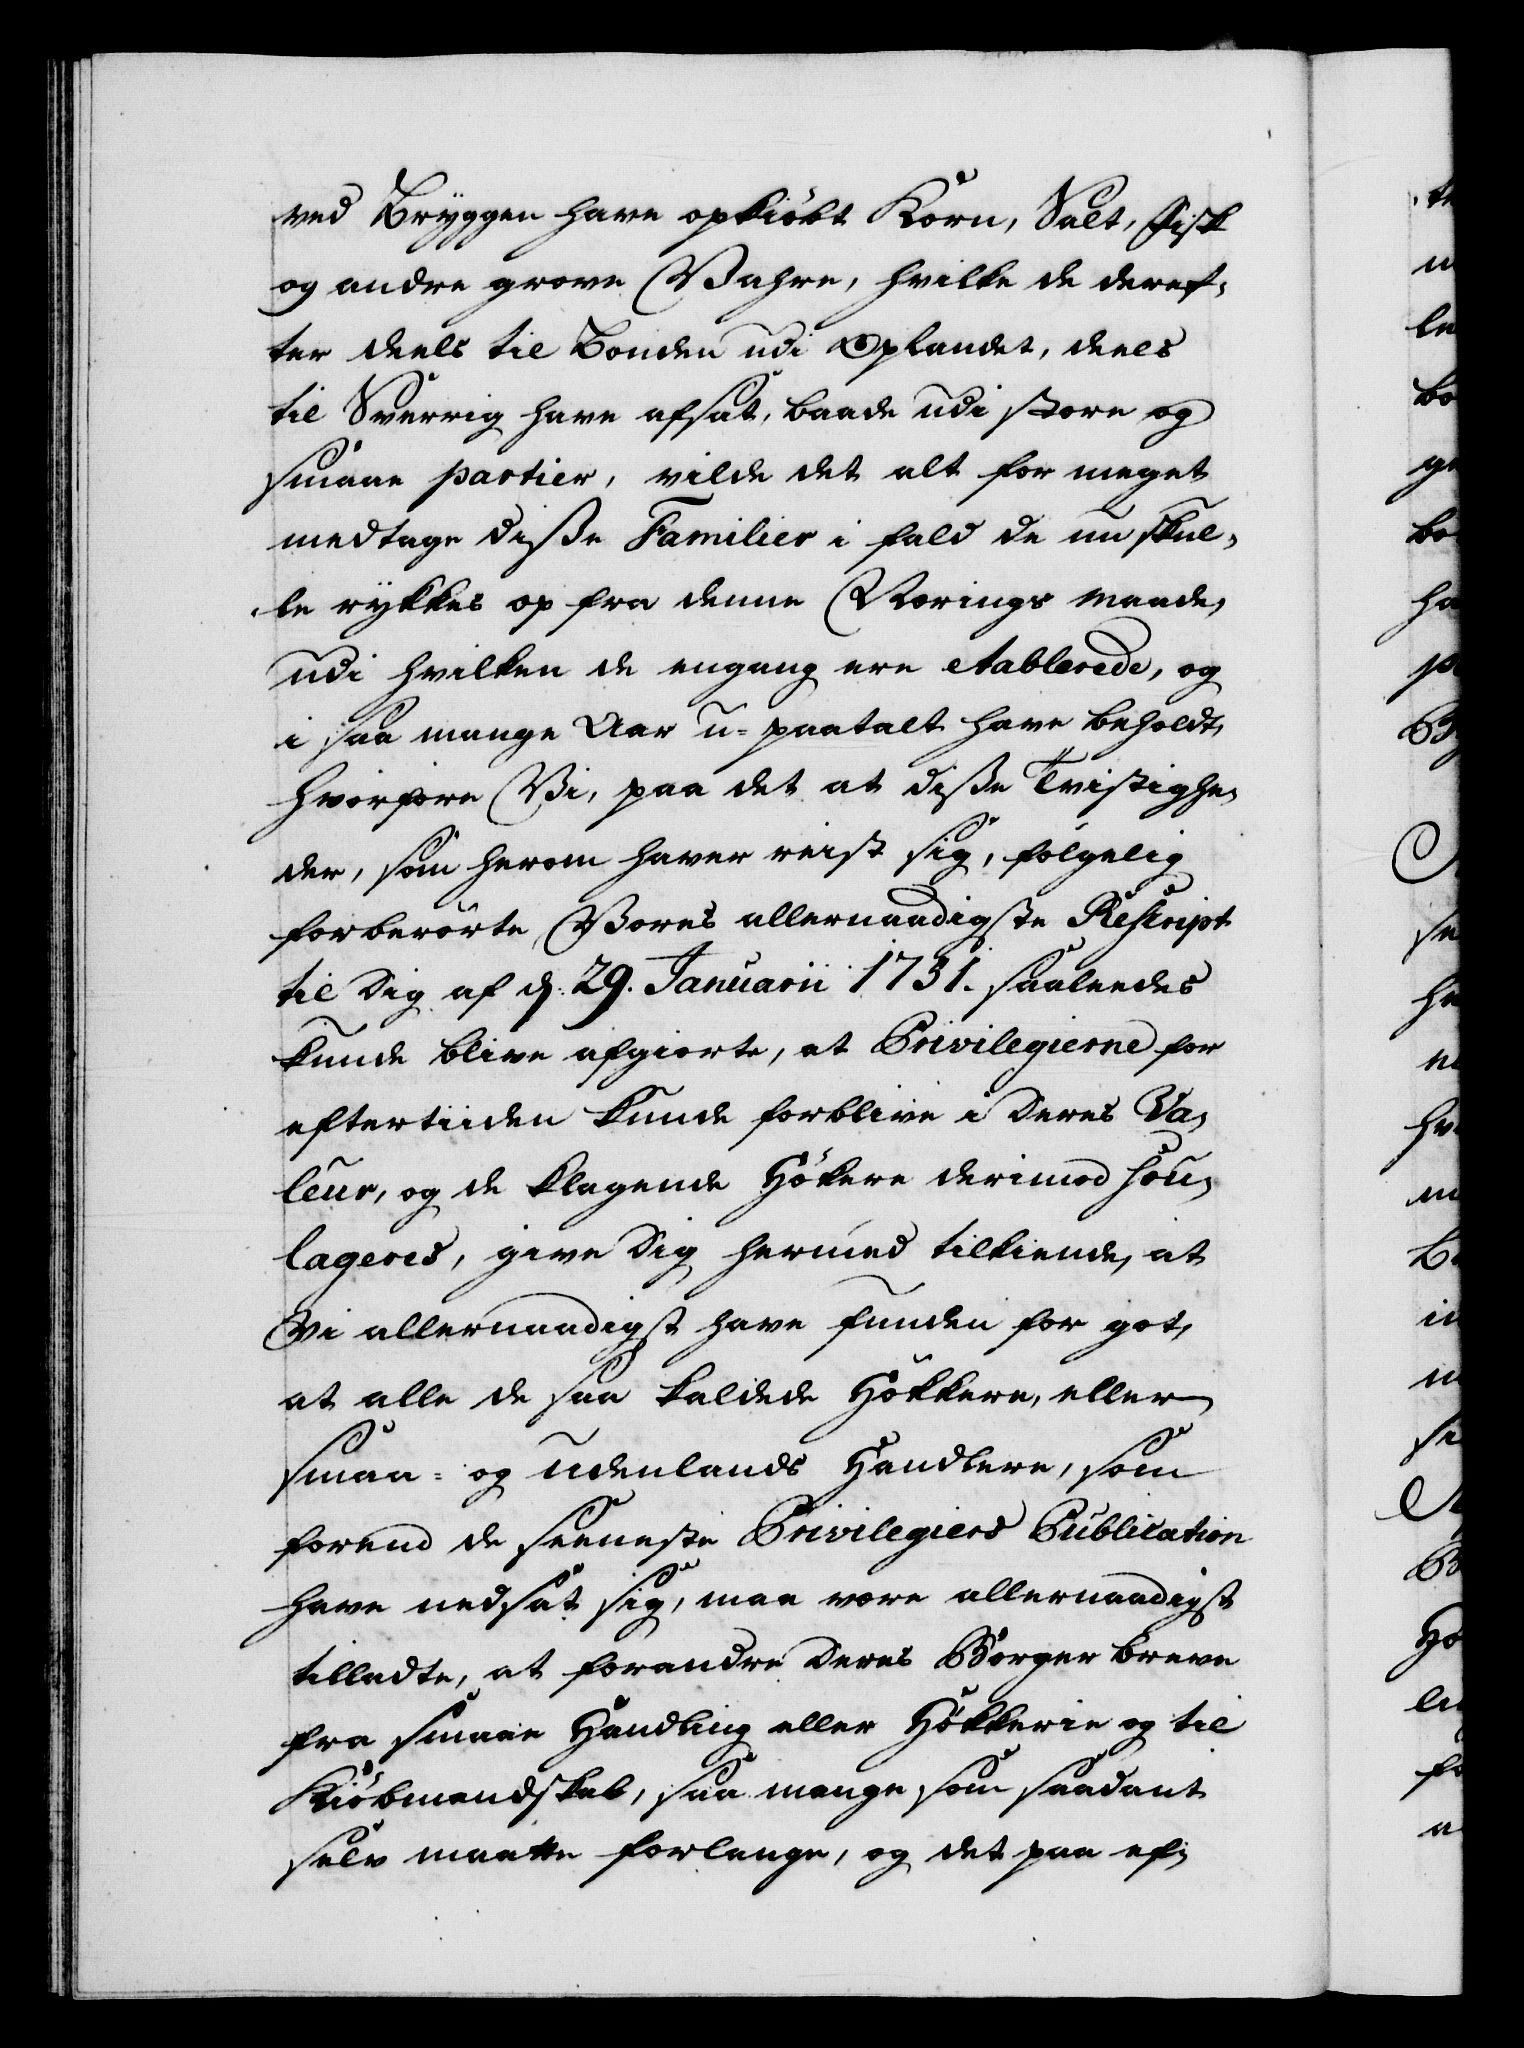 ved Bryggen have opkiöbt Korn, Salt, Fisk
og andre grove Vahre, hvilke de deref-
ter deels til Bonden udi Oplandet, deels
til Sverrig have afsat, baade udi store og
smaae partier, vilde det alt for meget
medtage diße Familier i fald de nu skul-
le rykkes op fra denne Nærings maade,
udi hvilken de engang ere etablerede, og
i saa mange Aar u-paatalt have beholdt,
hvorfore Vi, paa det at diße Tvistighe-
der, som herom haver reist sig, fölgelig
forberörte Vores allernaadigste Rescript
til Dig af d. 29. Januarii 1731. saaleedes
kunde blive afgiorte, at Privilegierne for
eftertiiden kunde forblive i deres Va-
leur, og de klagende Hökere derimod sou-
lageres, give Dig hermed tilkiende, at
Vi allernaadigst have funden for got,
at alle de saa kaldede Hökkere, eller
smaa- og udenlands Handlere, som
forend de seeneste Privilegiers Publication
have nedsat sig, maa være allernaadigst
tilladte, at forandre deres Borger breve
fra smaae Handling eller Hökkerie og til
Kiöbmandskab, saa mange som saadant
selv maatte forlange, og det paa ef-